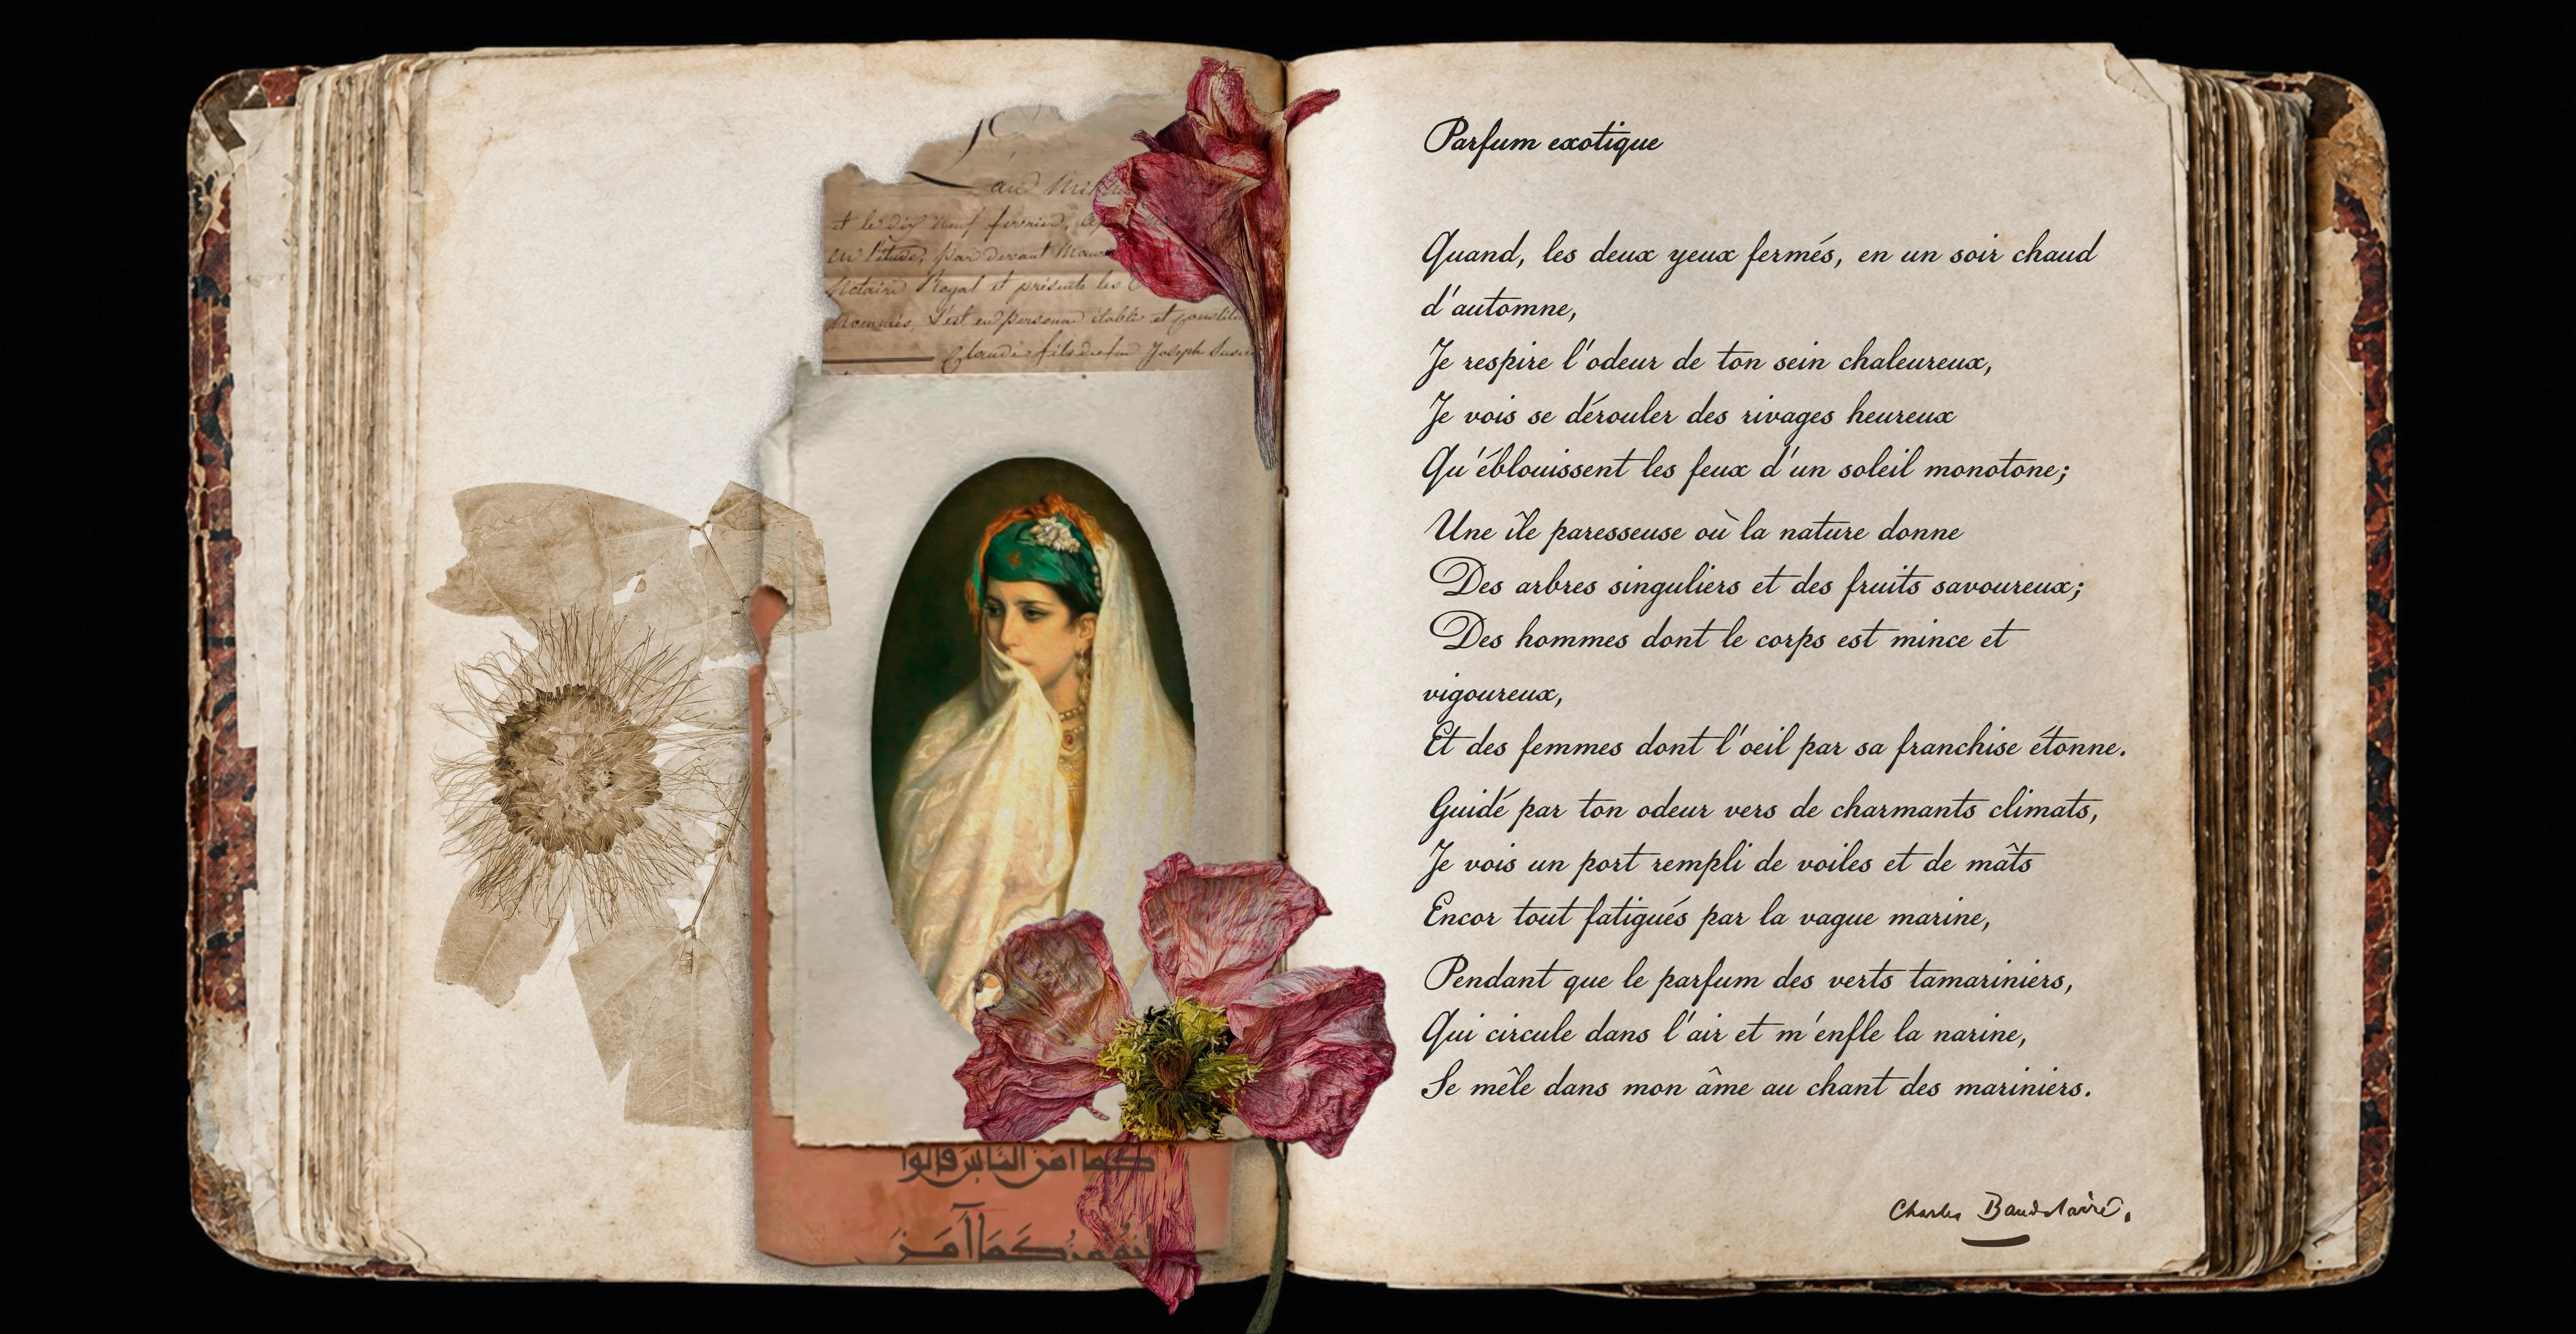 et le dix neuf fevrier,
en l'étude, par devant
Notaire Royal et présents les
Nommés, S'est en personne établi et
Claude fils de feu Joseph
كما آمن الناس قالوا
أنؤمن كما آمن
Parfum exotique
Quand, les deux yeux fermés, en un soir chaud
d'automne,
Je respire l'odeur de ton sein chaleureux,
Je vois se dérouler des rivages heureux
Qu'éblouissent les feux d'un soleil monotone;
Une île paresseuse où la nature donne
Des arbres singuliers et des fruits savoureux;
Des hommes dont le corps est mince et
vigoureux,
Et des femmes dont l'oeil par sa franchise étonne.
Guidé par ton odeur vers de charmants climats,
Je vois un port rempli de voiles et de mâts
Encor tout fatigués par la vague marine,
Pendant que le parfum des verts tamariniers,
Qui circule dans l'air et m'enfle la narine,
Se mêle dans mon âme au chant des mariniers.
Charles Baudelaire.